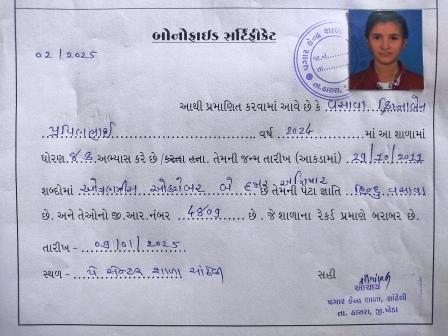 બોનોફાઇડ સર્ટિફીકેટ
02/2025
આથી પ્રમાણિત કરવામાં આવે છે કે વસાવા
વર્ષ 2024 માં આ શાળામાં
ધોરણ અભ્યાસ કરે છે /કરતા હતા. તેમની જન્મ તારીખ (આકડામાં) 29/10/2011
શબ્દોમાં ઓગણત્રીસ ઓક્ટોબર બે હજાર અગિયાર છે તેમની પેટા જ્ઞાતિ હિન્દુ વસાવા
છે. અને તેઓનો જી.આર.નંબર 4809 છે. જે શાળાના રેકર્ડ પ્રમાણે બરાબર છે.
તારીખ - 09/01/2025
સ્થળ - પે સેન્ટર શાળા
સહી
આચાર્ય
પગાર કેન્દ્ર શાળા, સાંઢેલી
તા. ઠાસરા, જી.ખેડા